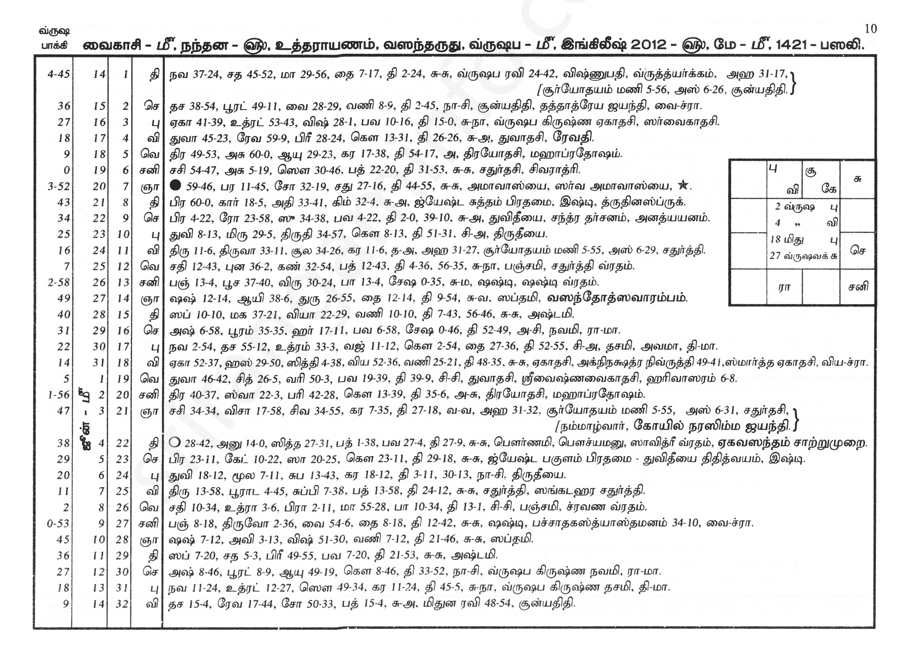 வ்ருஷ
பாக்கி
10
வைகாசி - மீ, நந்தன - ௵, உத்தராயணம், வஸந்தருது, வ்ருஷப - மீ, இங்கிலீஷ் 2012 - ௵, மே - மீ, 1421 - பஸலி.
4-45 14 1 தி நவ 37-24, சத 45-52, மா 29-56, தை 7-17, தி 2-24, சு-சு, வ்ருஷப ரவி 24-42, விஷ்ணுபதி, வ்ருத்த்யர்க்கம், அஹ 31-17,
[சூர்யோதயம் மணி 5-56, அஸ் 6-26, சூன்யதிதி.
36 15 2 செ தச 38-54, பூரட் 49-11, வை 28-29, வணி 8-9, தி 2-45, நா-சி, சூன்யதிதி, தத்தாத்ரேய ஜயந்தி, வை-ச்ரா.
27 16 3 பு ஏகா 41-39, உத்ரட் 53-43, விஷ் 28-1, பவ 10-16, தி 15-0, சு-நா, வ்ருஷப கிருஷ்ண ஏகாதசி, ஸர்வைகாதசி.
18 17 4 வி துவா 45-23, ரேவ 59-9, பிரீ 28-24, கௌ 13-31, தி 26-26, சு-அ, துவாதசி, ரேவதி.
9 18 5 வெ திர 49-53, அசு 60-0, ஆயு 29-23, கர 17-38, தி 54-17, அ, திரயோதசி, மஹாப்ரதோஷம்.
0 19 6 சனி சசி 54-47, அசு 5-19, ஸௌ 30-46, பத் 22-20, தி 31-53, சு-சு, சதுர்தசி, சிவராத்ரி.
3-52 20 7 ஞா ● 59-46, பர 11-45, சோ 32-19, சது 27-16, தி 44-55, சு-சு, அமாவாஸ்யை, ஸர்வ அமாவாஸ்யை, ★.
43 21 8 தி பிர 60-0, கார் 18-5, அதி 33-41, கிம் 32-4, சு-அ, ஜ்யேஷ்ட சுத்தம் பிரதமை, இஷ்டி, த்ருதினஸ்ப்ருக்.
34 22 9 செ பிர 4-22, ரோ 23-58, ஸு 34-38, பவ 4-22, தி 2-0, 39-10, சு-அ, துவிதீயை, சந்த்ர தர்சனம், அனத்யயனம்.
25 23 10 பு துவி 8-13, மிரு 29-5, திருதி 34-57, கௌ 8-13, தி 51-31, சி-அ, திருதீயை.
16 24 11 வி திரு 11-6, திருவா 33-11, சூல 34-26, கர 11-6, த-அ, அஹ 31-27, சூர்யோதயம் மணி 5-55, அஸ் 6-29, சதுர்த்தி.
7 25 12 வெ சதி 12-43, புன 36-2, கண் 32-54, பத் 12-43, தி 4-36, 56-35, சு-நா, பஞ்சமி, சதுர்த்தி வ்ரதம்.
2-58 26 13 சனி பஞ் 13-4, பூச 37-40, விரு 30-24, பா 13-4, சேஷ 0-35, சு-ம, ஷஷ்டி, ஷஷ்டி வ்ரதம்.
49 27 14 ஞா ஷஷ் 12-14, ஆயி 38-6, துரு 26-55, தை 12-14, தி 9-54, சு-வ, ஸப்தமி, வஸந்தோத்ஸவாரம்பம்.
40 28 15 தி ஸப் 10-10, மக 37-21, வியா 22-29, வணி 10-10, தி 7-43, 56-46, சு-சு, அஷ்டமி.
31 29 16 செ அஷ் 6-58, பூரம் 35-35, ஹர் 17-11, பவ 6-58, சேஷ 0-46, தி 52-49, அ-சி, நவமி, ரா-மா.
22 30 17 பு நவ 2-54, தச 55-12, உத்ரம் 33-3, வஜ் 11-12, கௌ 2-54, தை 27-36, தி 52-55, சி-அ, தசமி, அவமா, தி-மா.
14 31 18 வி ஏகா 52-37, ஹஸ் 29-50, ஸித்தி 4-38, விய 52-36, வணி 25-21, தி 48-35, சு-சு, ஏகாதசி, அக்நிநக்ஷத்ர நிவ்ருத்தி 49-41,ஸ்மார்த்த ஏகாதசி, விய-ச்ரா.
5 1 19 வெ துவா 46-42, சித் 26-5, வரி 50-3, பவ 19-39, தி 39-9, சி-சி, துவாதசி, ஸ்ரீவைஷ்ணவைகாதசி, ஹரிவாஸரம் 6-8.
1-56 ஜூன் - மீ 2 20 சனி திர 40-37, ஸ்வா 22-3, பரி 42-28, கௌ 13-39, தி 35-6, அ-சு, திரயோதசி, மஹாப்ரதோஷம்.
47 3 21 ஞா சசி 34-34, விசா 17-58, சிவ 34-55, கர 7-35, தி 27-18, வ-வ, அஹ 31-32, சூர்யோதயம் மணி 5-55, அஸ் 6-31, சதுர்தசி,
[நம்மாழ்வார், கோயில் நரஸிம்ம ஜயந்தி.
38 4 22 தி ○ 28-42, அனு 14-0, ஸித்த 27-31, பத் 1-38, பவ 27-4, தி 27-9, சு-சு, பௌர்ணமி, பௌச்யமனு, ஸாவித்ரீ வ்ரதம், ஏகவஸந்தம் சாற்றுமுறை.
29 5 23 செ பிர 23-11, கேட் 10-22, ஸா 20-25, கௌ 23-11, தி 29-18, சு-சு, ஜ்யேஷ்ட பகுளம் பிரதமை - துவிதீயை திதித்வயம், இஷ்டி.
20 6 24 பு துவி 18-12, மூல 7-11, சுப 13-43, கர 18-12, தி 3-11, 30-13, நா-சி, திருதீயை.
11 7 25 வி திரு 13-58, பூராட 4-45, சுப்பி 7-38, பத் 13-58, தி 24-12, சு-சு, சதுர்த்தி, ஸங்கடஹர சதுர்த்தி.
2 8 26 வெ சதி 10-34, உத்ரா 3-6, பிரா 2-11, மா 55-28, பா 10-34, தி 13-1, சி-சி, பஞ்சமி, ச்ரவண வ்ரதம்.
0-53 9 27 சனி பஞ் 8-18, திருவோ 2-36, வை 54-6, தை 8-18, தி 12-42, சு-சு, ஷஷ்டி, பச்சாதகஸ்த்யாஸ்தமனம் 34-10, வை-ச்ரா.
45 10 28 ஞா ஷஷ் 7-12, அவி 3-13, விஷ் 51-30, வணி 7-12, தி 21-46, சு-சு, ஸப்தமி.
36 11 29 தி ஸப் 7-20, சத 5-3, பிரீ 49-55, பவ 7-20, தி 21-53, சு-சு, அஷ்டமி.
27 12 30 செ அஷ் 8-46, பூரட் 8-9, ஆயு 49-19, கௌ 8-46, தி 33-52, நா-சி, வ்ருஷப கிருஷ்ண நவமி, ரா-மா.
18 13 31 பு நவ 11-24, உத்ரட் 12-27, ஸௌ 49-34, கர 11-24, தி 45-5, சு-நா, வ்ருஷப கிருஷ்ண தசமி, தி-மா.
9 14 32 வி தச 15-4, ரேவ 17-44, சோ 50-33, பத் 15-4, சு-அ, மிதுன ரவி 48-54, சூன்யதிதி.
பு சூ சு
வி கே
2 வ்ருஷ பு
4 ,, வி
18 மிது பு செ
27 வ்ருஷவக் சு
ரா சனி